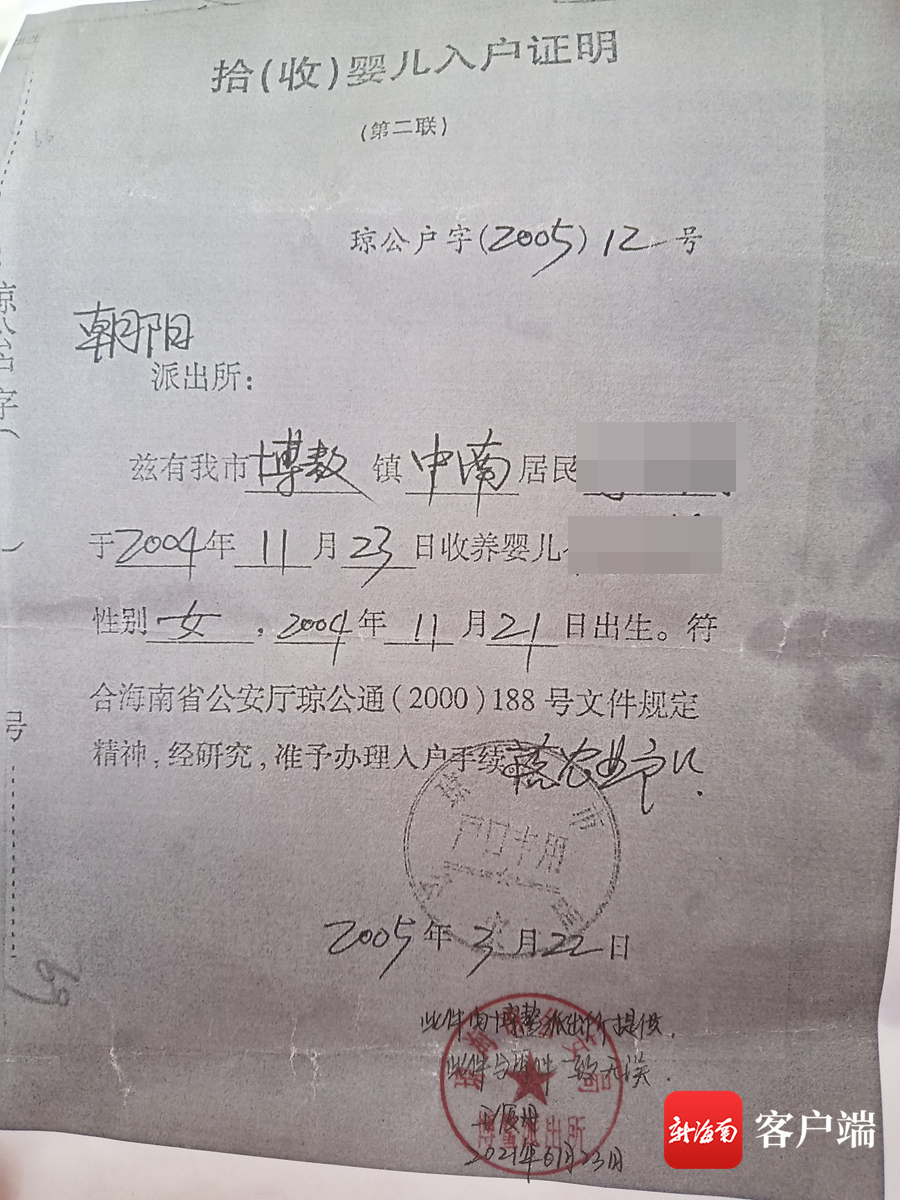 拾(收)婴儿入户证明
(第二联)
琼公户字(2005)12号
朝阳
派出所：
兹有我市博敖镇中南居民
于2004年11月23日收养婴儿
性别女，2004年11月21日出生。符
合海南省公安厅琼公通(2000)188号文件规定
精神，经研究，准予办理入户手续
户口专用
2005年3月22日
此件由博鳌派出所提供.
此件与原件一致无误.
2021年6月23日
琼公户字(
号
新海南 客户端